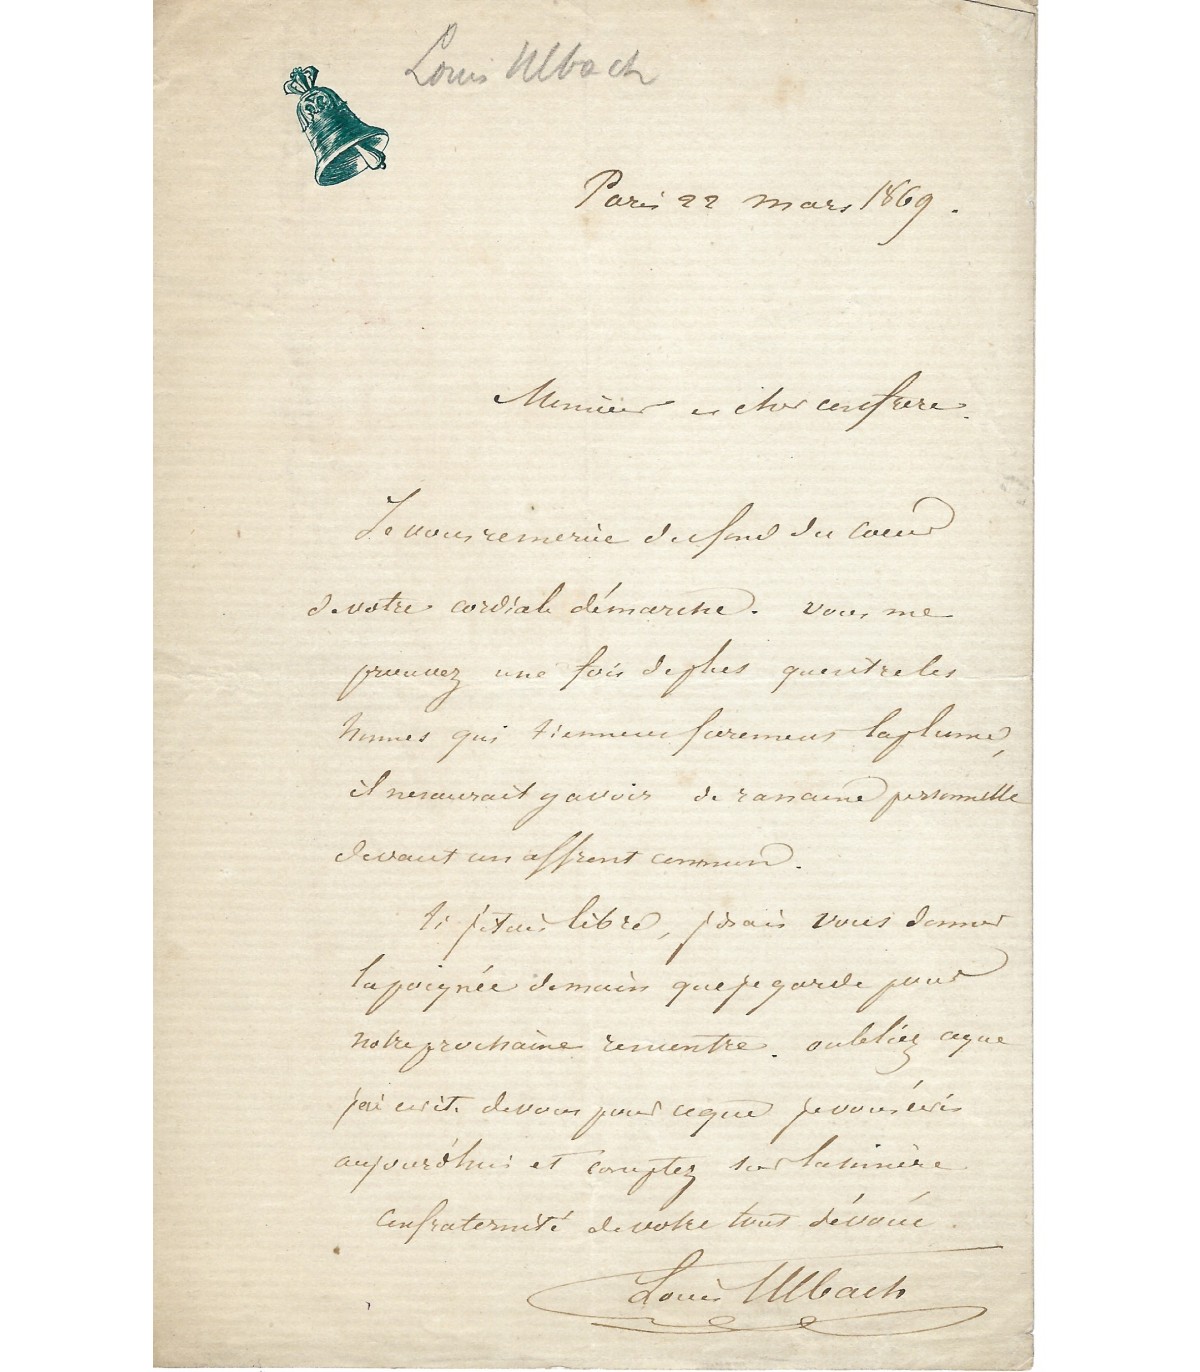 Louis Ulbach
Paris 22 mars 1869.
Monsieur et cher confrere.
Je vous remercie du fond du coeur
de votre cordiale démarche. vous me
prouvez une fois de plus qu'entre les
hommes qui tiennent la plume,
il ne saurait y avoir de rancune personnelle
devant un affront commun.
Si j'étais libre, j'irais vous donner
la poignée de main que je garde pour
notre prochaine rencontre. oubliez ce que
j'ai écrit de vous pour ce que je vous écris
aujourd'hui et comptez sur la sincère
confraternité de votre tout dévoué.
Louis Ulbach